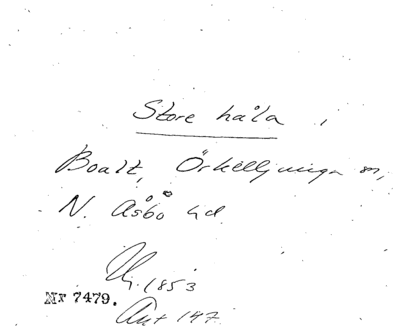 Store håla
Boalt, Örkelljunga sn,
N. Åsbo hd
1853
Nr 7479.
Ant 147